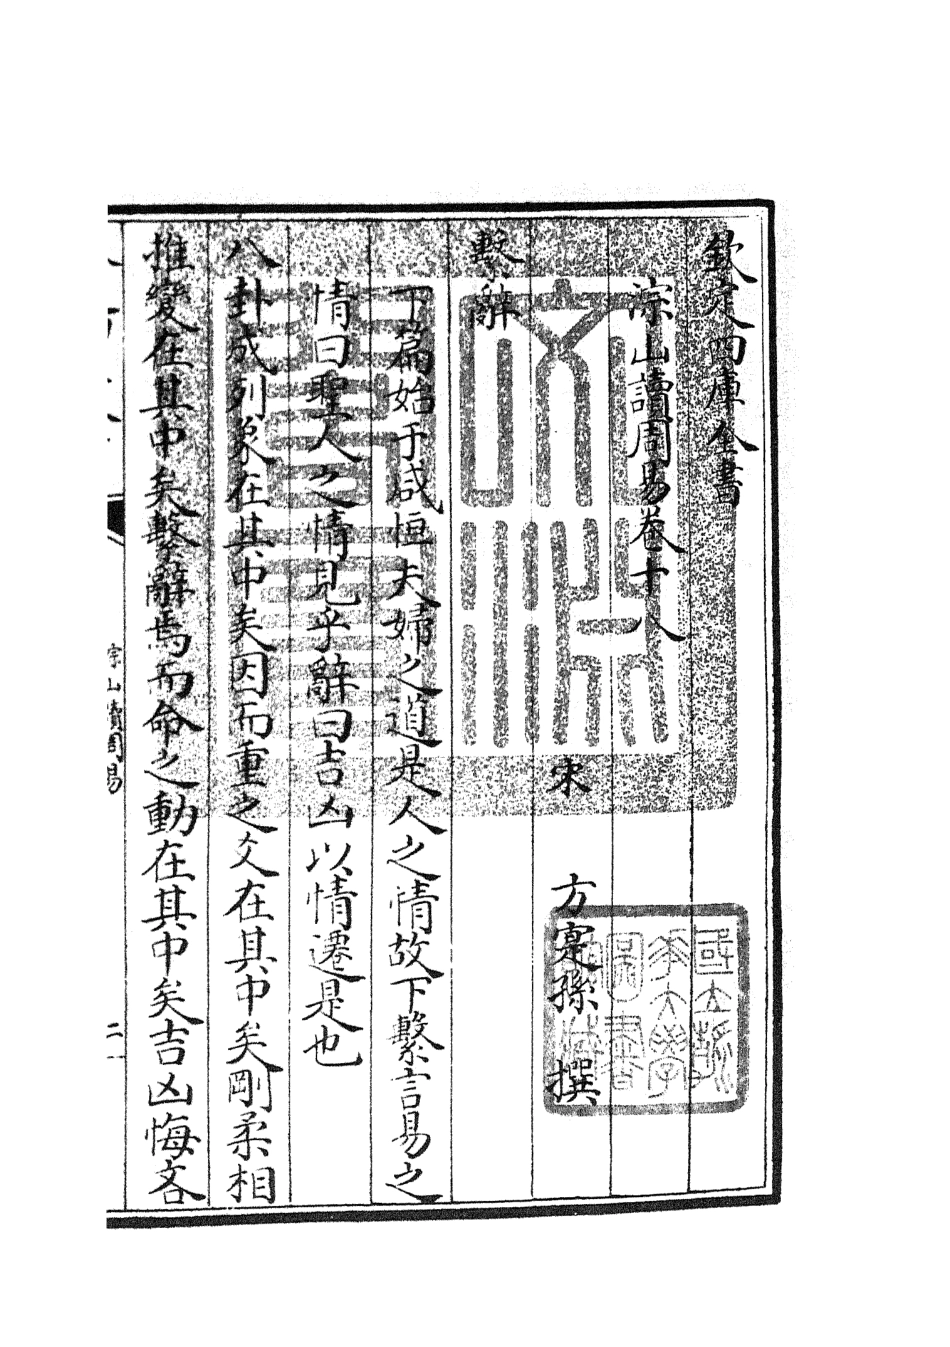 欽定四庫全書
淙山讀周易卷十八
宋 方寔孫 撰
繫辭
下篇始于咸恒夫婦之道是人之情故下繫言易之
情曰聖人之情見乎辭曰吉凶以情遷是也
八卦成列象在其中矣因而重之爻在其中矣剛柔相
推變在其中矣繫辭焉而命之動在其中矣吉凶悔吝
淙山讀周易